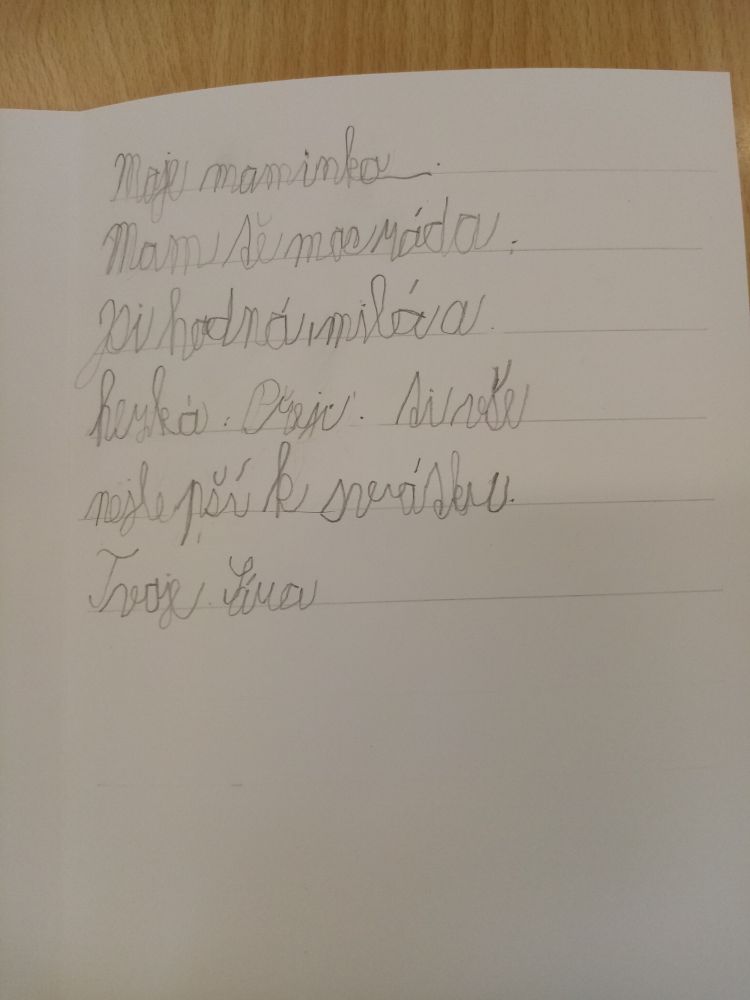 Moje maminko.
Mam tě moc ráda.
Jsi hodná, milá a
hezká. Přeju. ti vše
nejlepší k svátku.
Tvoje